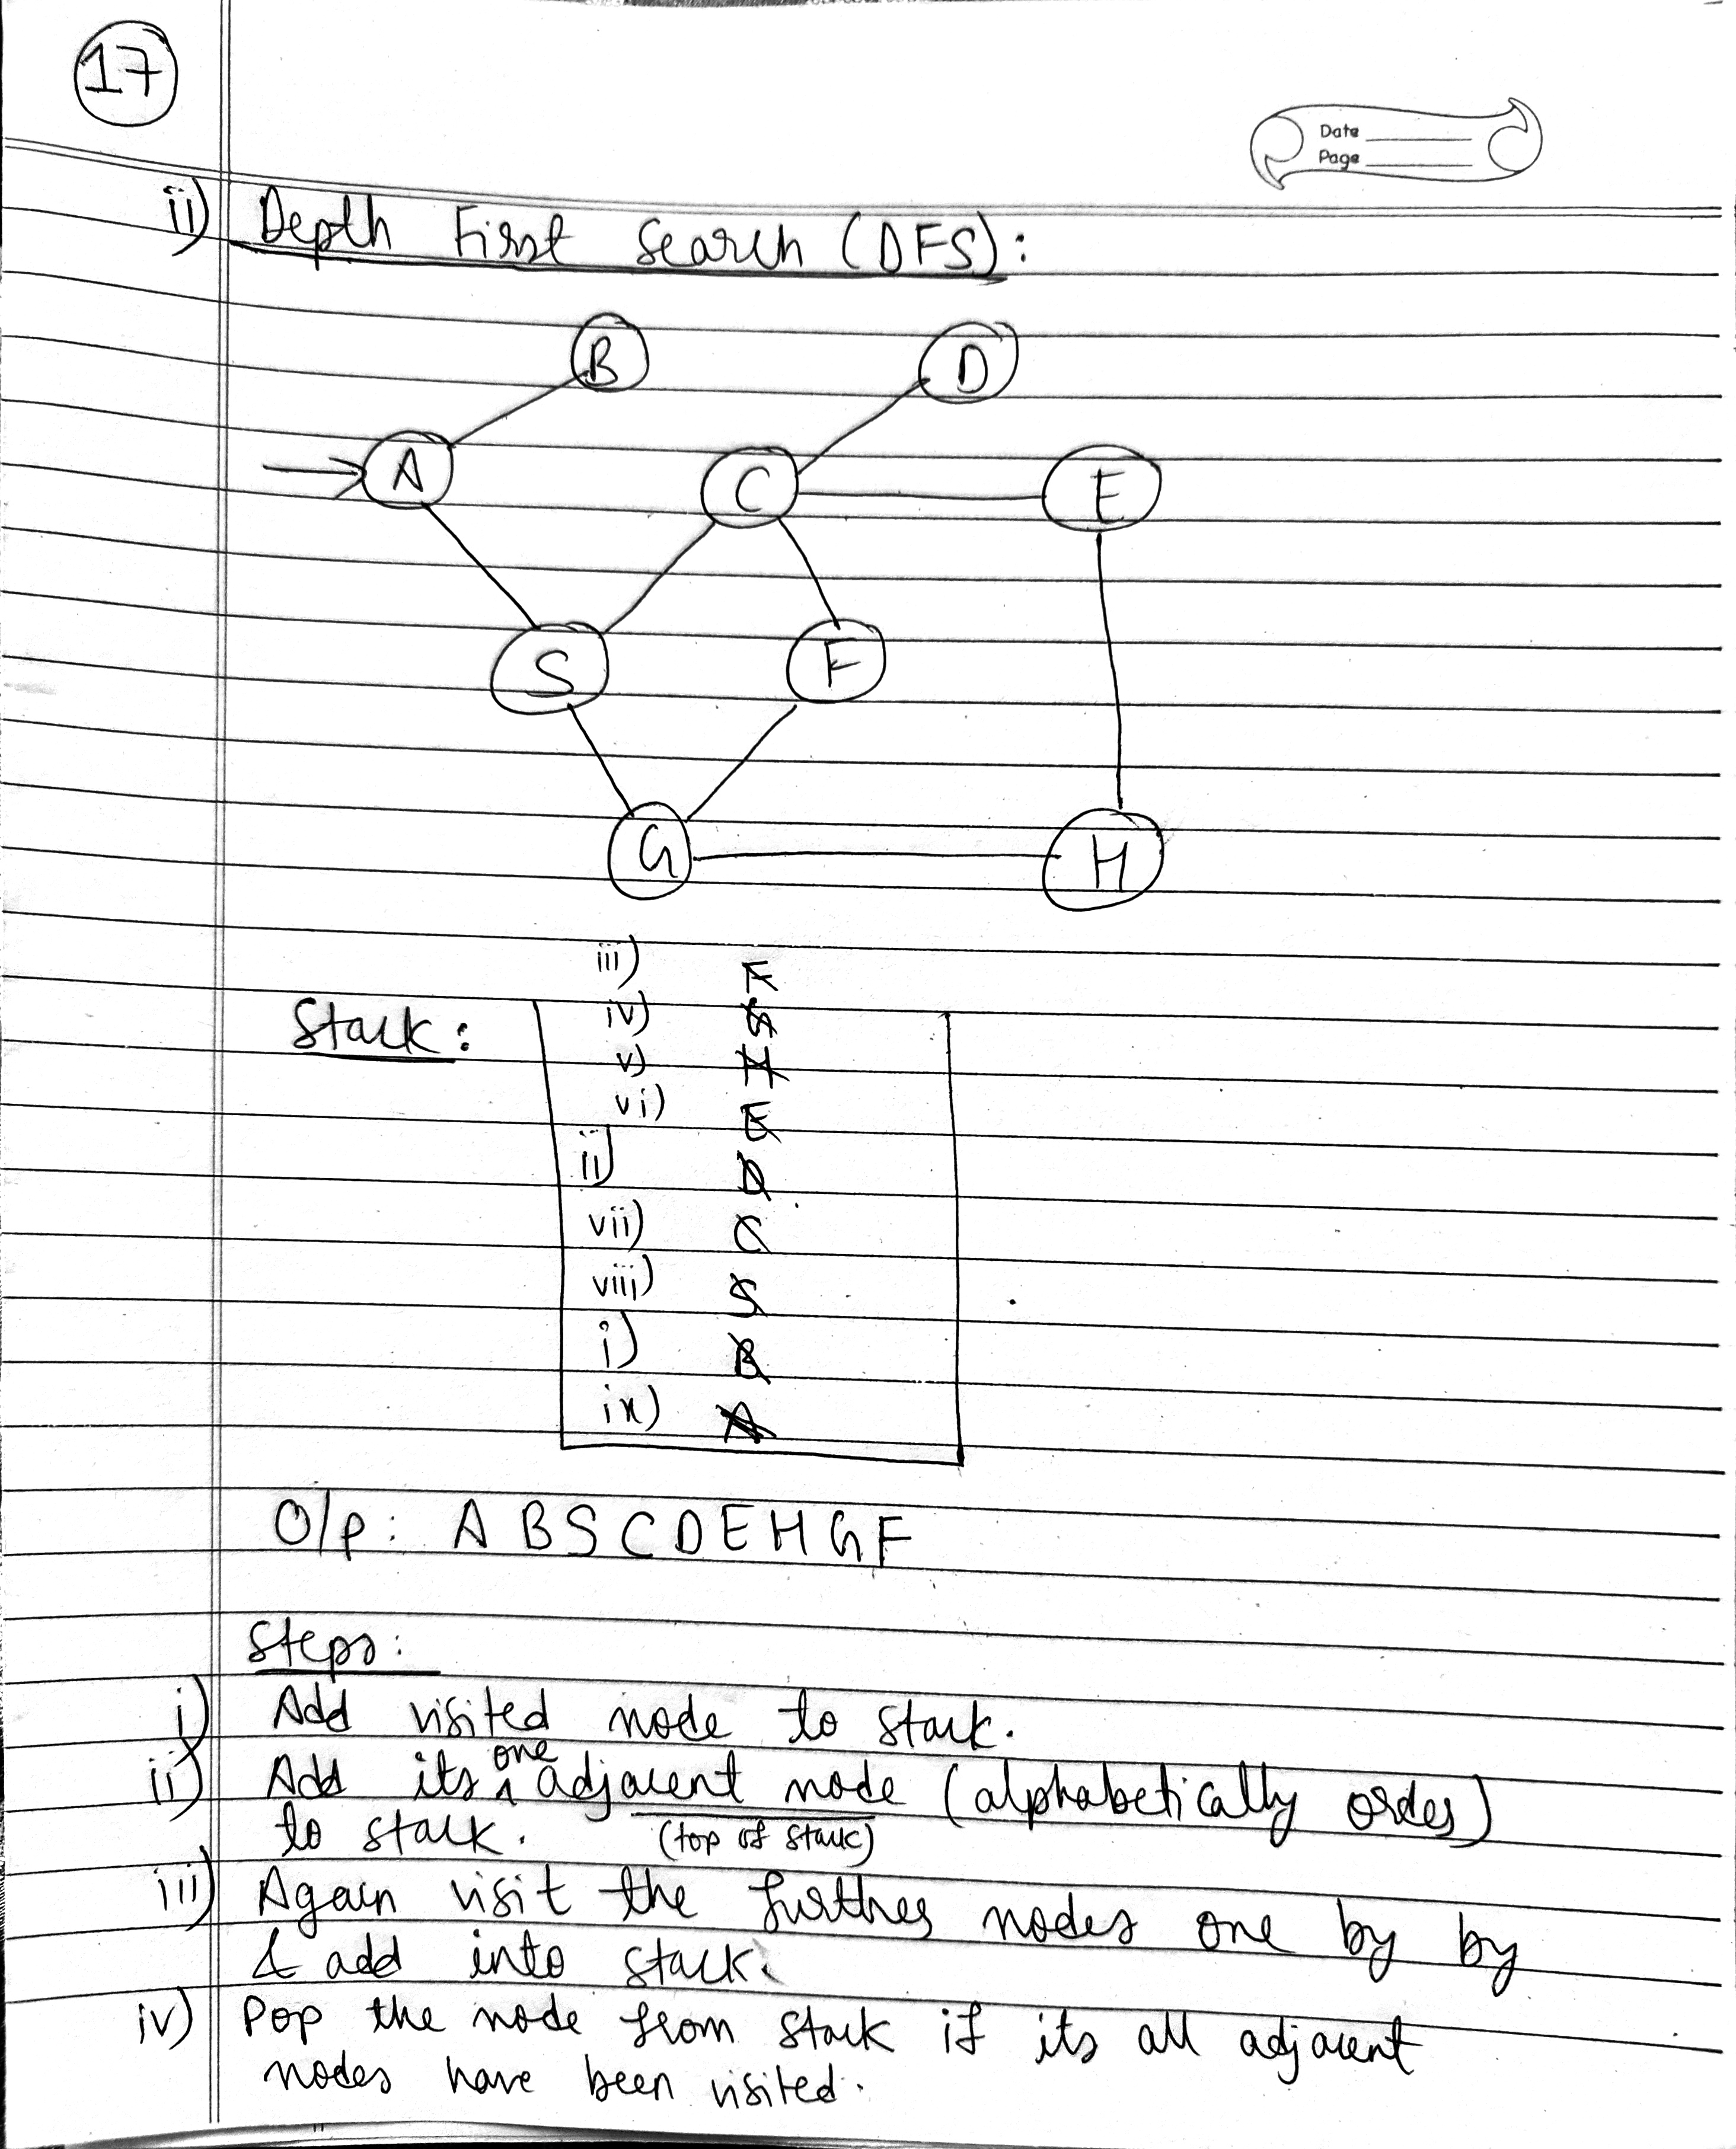 17
Date
Page
ii) Depth First Search (DFS):
B
D
A
C
E
S
F
G
H
iii) F
Stack:
iv) G
v) H
vi) E
ii) D
vii) C
viii) S
i) B
ix) A
O/p: A B S C D E H G F
Steps:
i) Add visited node to stack.
ii) Add its one adjacent node (alphabetically order)
to stack. (top of stack)
iii) Again visit the further nodes one by by
& add into stack.
iv) Pop the node from stack if its all adjacent
nodes have been visited.